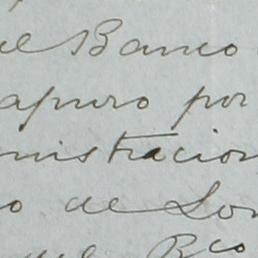 el Banco
apuro por
ministracion
o de Lon
del Bco